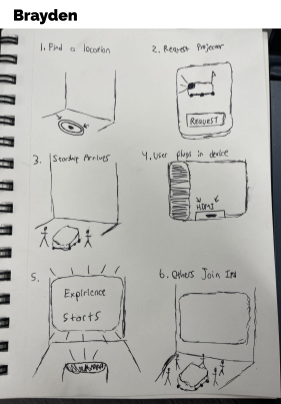 Brayden
1. Find a location
2. Request Projector
REQUEST
3. Starship Arrives
4. User plugs in device
HDMI
5.
Explrience
Starts
6. Others Join In!